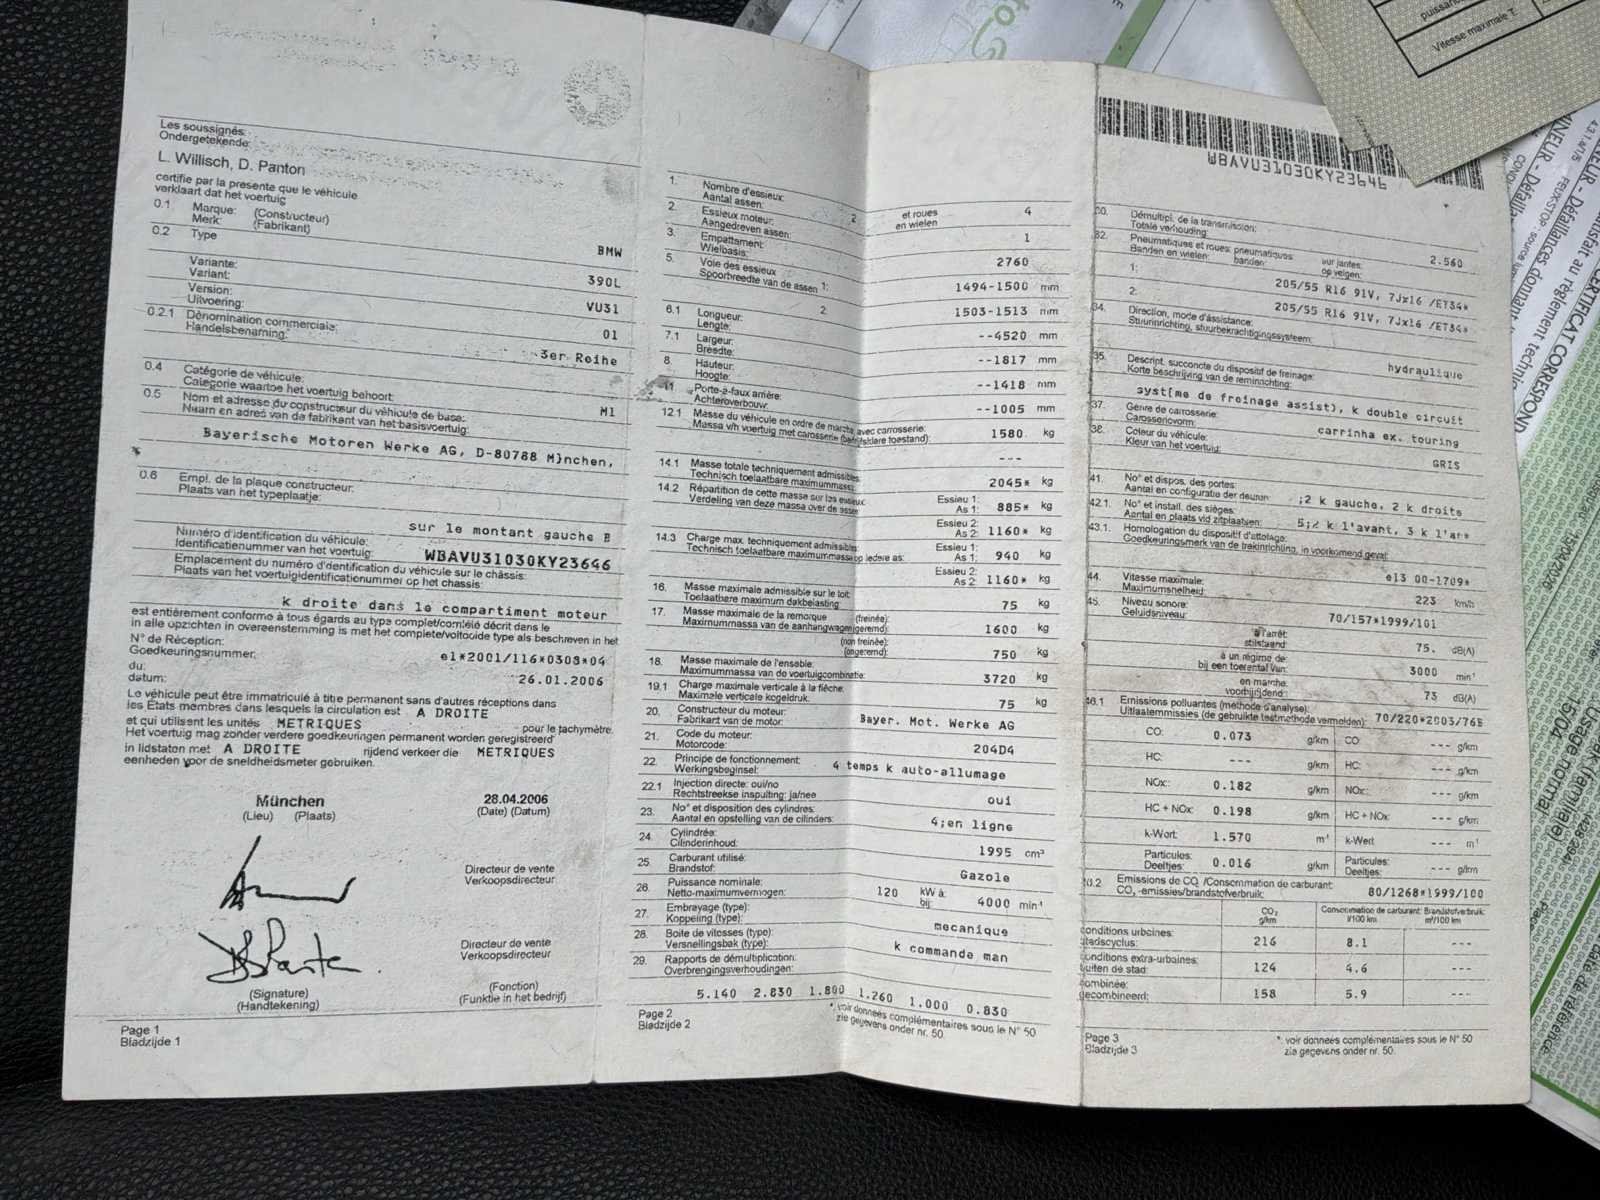 Les soussignés:
Ondergetekende:
L. Willisch, D. Panton
certifie par la presente que le véhicule
verklaart dat het voertuig
0.1 Marque: (Constructeur)
Merk: (Fabrikant)
BMW
0.2 Type
390L
Variante:
Variant:
VU31
Version:
Uitvoering:
01
0.2.1 Dénomination commerciale:
Handelsbenaming:
3er Reihe
0.4 Catégorie de véhicule:
Categorie waartoe het voertuig behoort:
M1
0.5 Nom et adresse du constructeur du véhicule de base:
Naam en adres van de fabrikant van het basisvoertuig:
Bayerische Motoren Werke AG, D-80788 M}nchen,
0.6 Empl. de la plaque constructeur:
Plaats van het typeplaatje:
sur le montant gauche B
Numéro d'identification du véhicule:
Identificatienummer van het voertuig:
WBAVU31030KY23646
Emplacement du numéro d'identification du véhicule sur le châssis:
Plaats van het voertuigidentificatienummer op het chassis:
k droite dans le compartiment moteur
est entièrement conforme à tous égards au type complet/complété décrit dans le
in alle opzichten in overeenstemming is met het complete/voltooide type als beschreven in het
N° de Réception:
Goedkeuringsnummer:
e1*2001/116*0308*04
du:
datum:
26.01.2006
Le véhicule peut être immatriculé à titre permanent sans d'autres réceptions dans
les Etats membres dans lesquels la circulation est A DROITE
et qui utilisent les unités METRIQUES pour le tachymètre.
Het voertuig mag zonder verdere goedkeuringen permanent worden geregistreerd
in lidstaten met A DROITE rijdend verkeer die METRIQUES
eenheden voor de snelheidsmeter gebruiken.
München 28.04.2006
(Lieu) (Plaats) (Date) (Datum)
Directeur de vente
Verkoopsdirecteur
Directeur de vente
Verkoopsdirecteur
(Signature) (Fonction)
(Handtekening) (Funktie in het bedrijf)
Page 1
Bladzijde 1
1. Nombre d'essieux: 2 et roues 4
Aantal assen: en wielen
2. Essieux moteur: 1
Aangedreven assen:
3. Empattement: 2760
Wielbasis:
5. Voie des essieux 1: 1494-1500 mm
Spoorbreedte van de assen 2 1503-1513 mm
6.1 Longueur: --4520 mm
Lengte:
7.1 Largeur: --1817 mm
Breedte:
8. Hauteur: --1418 mm
Hoogte:
11. Porte-à-faux arrière: --1005 mm
Achteroverbouw:
12.1 Masse du véhicule en ordre de marche avec carrosserie: 1580 kg
Massa v/h voertuig met carosserie toestand):
---
14.1 Masse totale techniquement admissibles: 2045* kg
Technisch toelaatbare maximummassa:
14.2 Répartition de cette masse sur les essieux: Essieu 1: 885* kg
Verdeling van deze massa over de assen As 1:
Essieu 2: 1160* kg
As 2:
14.3 Charge max. techniquement admissibles: Essieu 1: 940 kg
Technisch toelaatbare maximummassa op iedere as: As 1:
Essieu 2: 1160* kg
As 2:
16. Masse maximale admissible sur le toit: 75 kg
Toelaatbare maximum dakbelasting:
17. Masse maximale de la remorque (freinée): 1600 kg
Maximummassa van de aanhangwagen (geremd):
(non freinée): 750 kg
(ongeremd):
18. Masse maximale de l'ensemble: 3720 kg
Maximummassa van de voertuigcombinatie:
19.1 Charge maximale verticale à la flèche: 75 kg
Maximale verticale kogeldruk:
20. Constructeur du moteur: Bayer. Mot. Werke AG
Fabrikant van de motor:
21. Code du moteur: 204D4
Motorcode:
22. Principe de fonctionnement: 4 temps k auto-allumage
Werkingsbeginsel:
22.1 Injection directe: oui/no oui
Rechtstreekse inspuiting: ja/nee
23. No° et disposition des cylindres: 4;en ligne
Aantal en opstelling van de cilinders:
24. Cylindrée: 1995 cm³
Cilinderinhoud:
25. Carburant utilisé: Gazole
Brandstof:
26. Puissance nominale: 120 kW à: 4000 min-¹
Netto-maximumvermogen: bij:
27. Embrayage (type): mecanique
Koppeling (type):
28. Boite de vitosses (type): k commande man
Versnellingsbak (type):
29. Rapports de démultiplication:
Overbrengingsverhoudingen:
5.140 2.830 1.800 1.260 1.000 0.830
Page 2 *. voir données complémentaires sous le N° 50
Bladzijde 2 zie gegevens onder nr. 50.
WBAVU31030KY23646
30. Démultipl. de la transmission: 2.560
Totale verhouding:
32. Pneumatiques et roues: pneumatiques: sur jantes:
Banden en wielen: banden: op velgen:
1: 205/55 R16 91V, 7Jx16 /ET34*
2: 205/55 R16 91V, 7Jx16 /ET34*
34. Direction, mode d'assistance: hydraulique
Stuurinrichting, stuurbekrachtigingssysteem:
35. Descript. succoncte du dispositif de freinage:
Korte beschrijving van de reminrichting:
syst[me de froinage assist), k double circuit
37. Genre de carrosserie: carrinha ex. touring
Carosserievorm:
38. Coleur du véhicule: GRIS
Kleur van het voertuig:
41. No° et dispos. des portes: ;2 k gauche, 2 k droite
Aantal en configuratie der deuren:
42.1 No° et install. des sièges: 5;2 k l'avant, 3 k l'ar*
Aantal en plaats vld zitplaatsen:
43.1. Homologation du dispositif d'attolage:
Goedkeuringsmerk van de trekinrichting, in voorkomend geval:
e13 00-1709*
44. Vitesse maximale: 223 km/h
Maximumsnelheid:
45. Niveau sonore: 70/157*1999/101
Geluidsniveau:
à l'arrêt: 75. dB(A)
stilstaand:
à un régime de: 3000 min-¹
bij een toerental van:
en marche: 73 dB(A)
voorbijrijdend:
46.1 Emissions polluantes (méthode d'analyse): 70/220*2003/76B
Uitlaatemmissies (de gebruikte testmethode vermelden):
CO: 0.073 g/km CO: --- g/km
HC: --- g/km HC: --- g/km
NOx: 0.182 g/km NOx: --- g/km
HC + NOx: 0.198 g/km HC + NOx: --- g/km
k-Wort: 1.570 m-¹ k-Wert --- m-¹
Particules: 0.016 g/km Particules: --- g/km
Deeltjes: Deeltjes:
46.2 Emissions de CO₂ /Consommation de carburant: 80/1268*1999/100
CO₂-emissies/brandstofverbruik:
CO₂ Consommation de carburant: Brandstofverbruik:
g/km l/100 km m³/100 km
conditions urbaines: 216 8.1 ---
stadscyclus:
conditions extra-urbaines: 124 4.6 ---
buiten de stad:
combinée: 158 5.9 ---
gecombineerd:
Page 3 *. voir données complémentaires sous le N° 50
Bladzijde 3 zie gegevens onder nr. 50.
Vitesse maximale T.
CERTIFICAT CORRESPON
15/04/2026
Usage normal